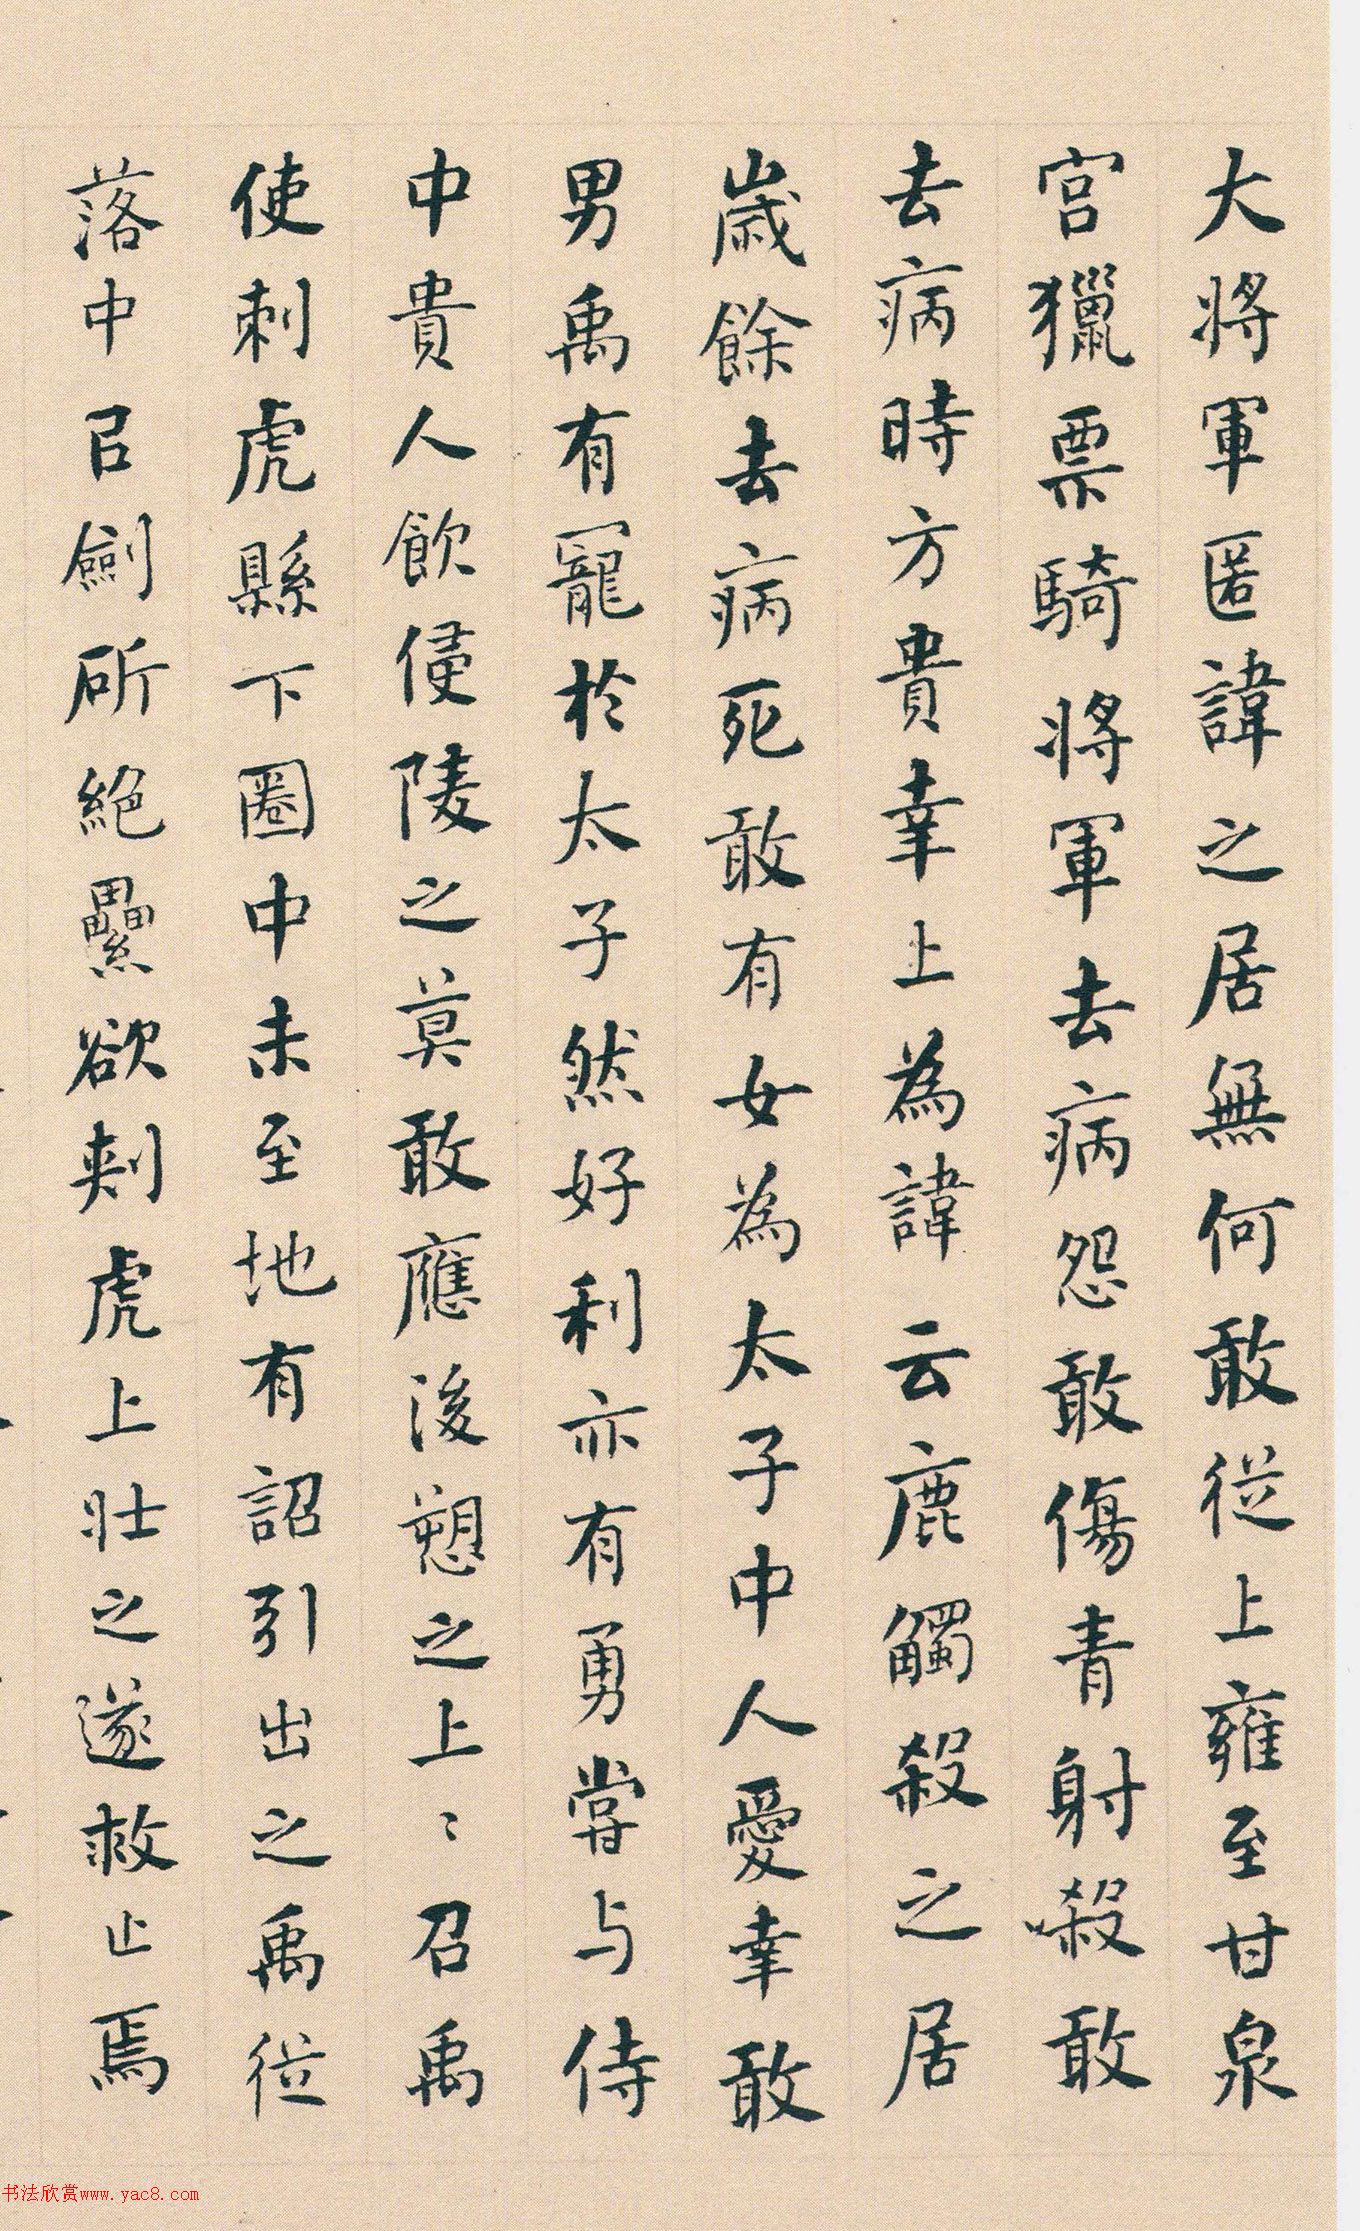 大將軍匿諱之居無何敢從上雍至甘泉
宮獵票騎將軍去病怨敢傷青射殺敢
去病時方貴幸上為諱云鹿觸殺之居
歲餘去病死敢有女為太子中人愛幸敢
男禹有寵於太子然好利亦有勇嘗与侍
中貴人飲侵陵之莫敢應後愬之上〻召禹
使刺虎縣下圈中未至地有詔引出之禹從
落中㠯劍斫絕纍欲刺虎上壯之遂救止焉
书法欣赏www.yac8.com